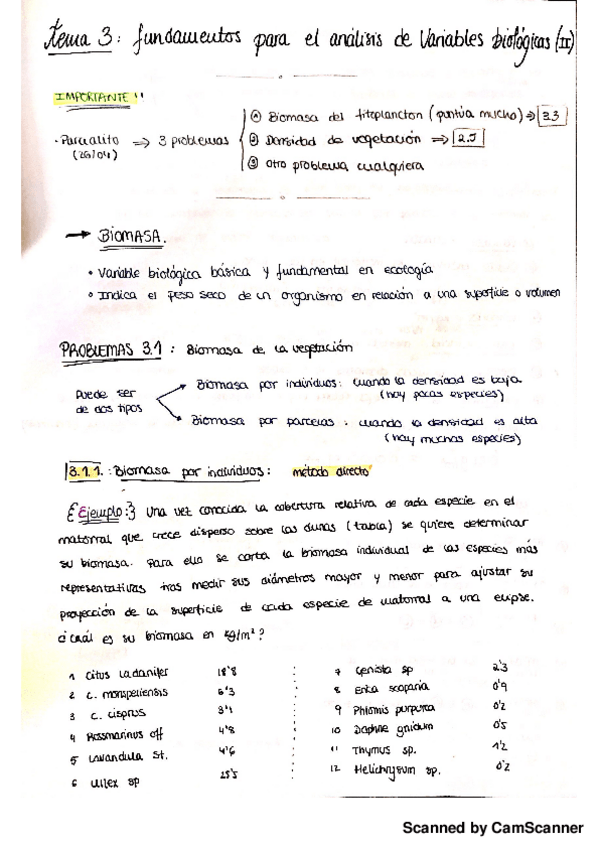 Tema 3: fundamentos para el análisis de Variables biológicas (II)
IMPORTANTE !!
· Parcialito ⇒ 3 problemas
(26/04)
① Biomasa del fitoplancton (puntúa mucho) ⇒ 3.3
② Densidad de vegetación ⇒ 2.5
③ Otro problema cualquiera
→ BIOMASA.
• Variable biológica básica y fundamental en ecología
• Indica el peso seco de un organismo en relación a una superficie o volumen
PROBLEMAS 3.1 : Biomasa de la vegetación
Puede ser
de dos tipos
Biomasa por individuos: cuando la densidad es baja
(hay pocas especies)
Biomasa por parcelas : cuando la densidad es alta
(hay muchas especies)
3.1.1. : Biomasa por individuos: método directo
{Ejemplo:} Una vez conocida la cobertura relativa de cada especie en el
matorral que crece disperso sobre las dunas (tabla) se quiere determinar
su biomasa. Para ello se corta la biomasa individual de las especies más
representativas tras medir sus diámetros mayor y menor para ajustar su
proyección de la superficie de cada especie de matorral a una elipse.
¿cuál es su biomasa en kg/m²?
1 Citus ladanifer 18'8
2 C. monspeliensis 6'3
3 C. cisprus 3'1
4 Rossmarinus off 4'8
5 Lavandula St. 4'6
6 Ullex sp 25'5
7 Genista sp 2'3
8 Erika scoparia 0'9
9 Phlomis purpurea 0'2
10 Daphne gnidium 0'5
11 Thymus sp. 1'2
12 Helichrysum sp. 0'2
Scanned by CamScanner